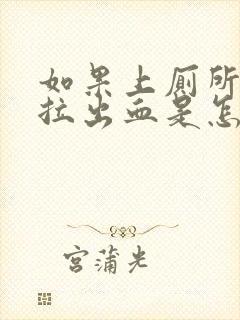 如果上厕所
拉出血是怎
宫蒲光